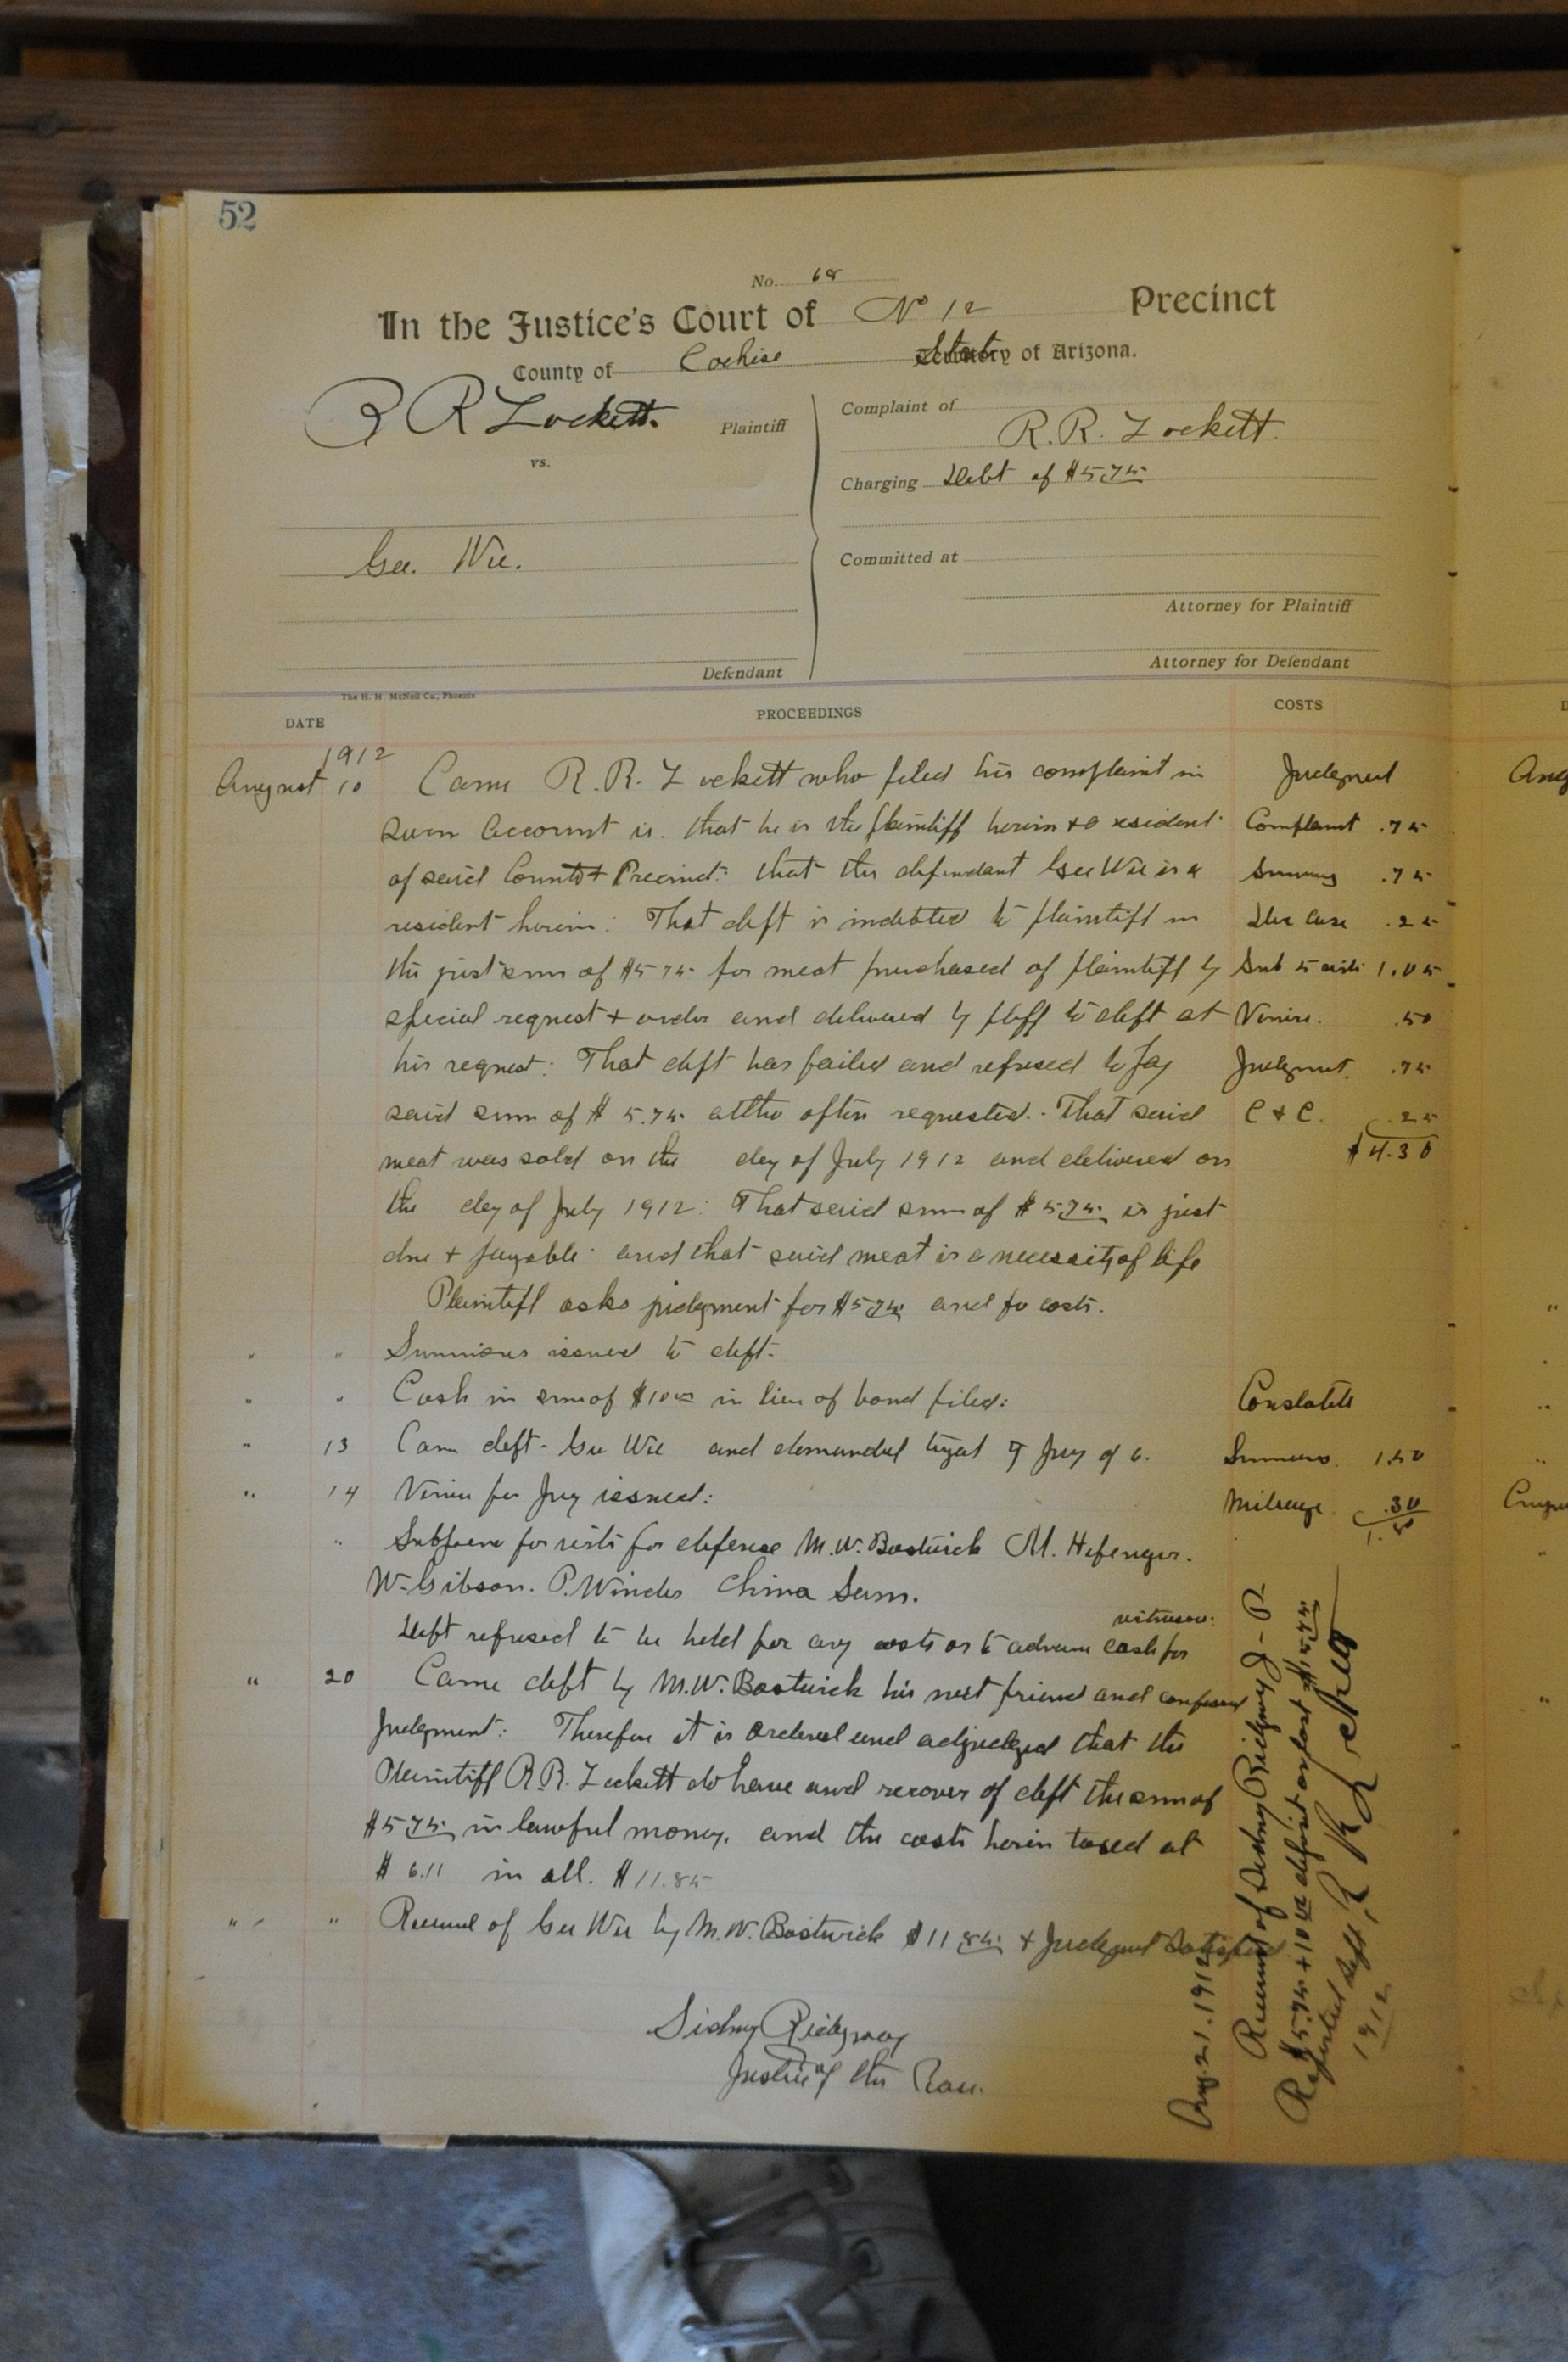 52
No. 68
In the Justice's Court of No 12 Precinct
County of Cochise State of Arizona.
R R Lockett. Plaintiff
vs.
Gee. Wee.
Defendant
Complaint of
R. R. Lockett.
Charging Debt of $5.75
Committed at
Attorney for Plaintiff
Attorney for Defendant
The H. H. McNeil Co., Phoenix
DATE PROCEEDINGS COSTS
1912
August 10 Came R. R. Lockett who filed his complaint in Judgment
sum account is. that he is the plaintiff herein + a resident Complaint .75
of said County + Precinct: that the defendant Gee Wee is a Summs .75
resident herein: That deft is indebted to plaintiff in Doc Case .25
the just sum of $5.75 for meat purchased of plaintiff by Sub 5 wits 1.05
special request + order and delivered by plff to deft at Venire. .50
his request: That deft has failed and refused to pay Judgmnt. .75
said sum of $5.75 altho often requested. That said C & C. .25
meat was sold on the day of July 1912 and delivered on $4.30
the day of July 1912: That said sum of $5.75 is just
due + payable and that said meat is a necessity of life
Plaintiff asks judgment for $5.75 and for costs.
" " Summons issued to deft.
" " Cash in sum of $10.00 in lieu of bond filed: Constable
" 13 Came deft. Gee Wee and demanded tryal by Jury of 6. Summons. 1.50
" 14 Venire for Jury issued: Mileage .30
1.80
" Subpoena for wits for defense M. W. Bostwick M. Hefenger.
W. Gibson. P. Winders China Sam.
witnesses.
Deft refused to be held for any costs or to advance cash for
" 20 Came deft by M. W. Bostwick his next friend and confessed
Judgment: Therefore it is ordered and adjudged that the
Plaintiff R. R. Lockett do have and recover of deft the sum of
$5.75 in lawful money, and the costs herein taxed at
$ 6.11 in all. $11.85
" " Received of Gee Wee by M. W. Bostwick $11.85 + Judgment Satisfied
Sidney Ridgway
Justice of the Peace.
Aug. 21. 1912
Received of Sidney Ridgway J-P
$5.75 + 10.00 deposit
1912